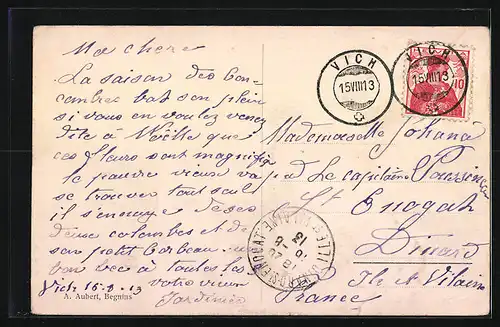 Ma chere
La saison des con-
combres bat son plein
si vous en voulez venez
dite à que
ces fleurs sont magnifiques
le pauvre vieux va pas
se trouver tout seul
il s'ennuye de ses
deux colombes et de
son petit corbeau. un
bon bec à toutes les
votre vieux
Jardinier
Vich 16-8-13
A. Aubert, Begnins
VICH
15VIII13
VICH
15VIII13
10
Mademoiselle Johana
Le capitaine
St Enogat
Dinard
Ile et Vilaine
France
ILLE-ET-VILAINE